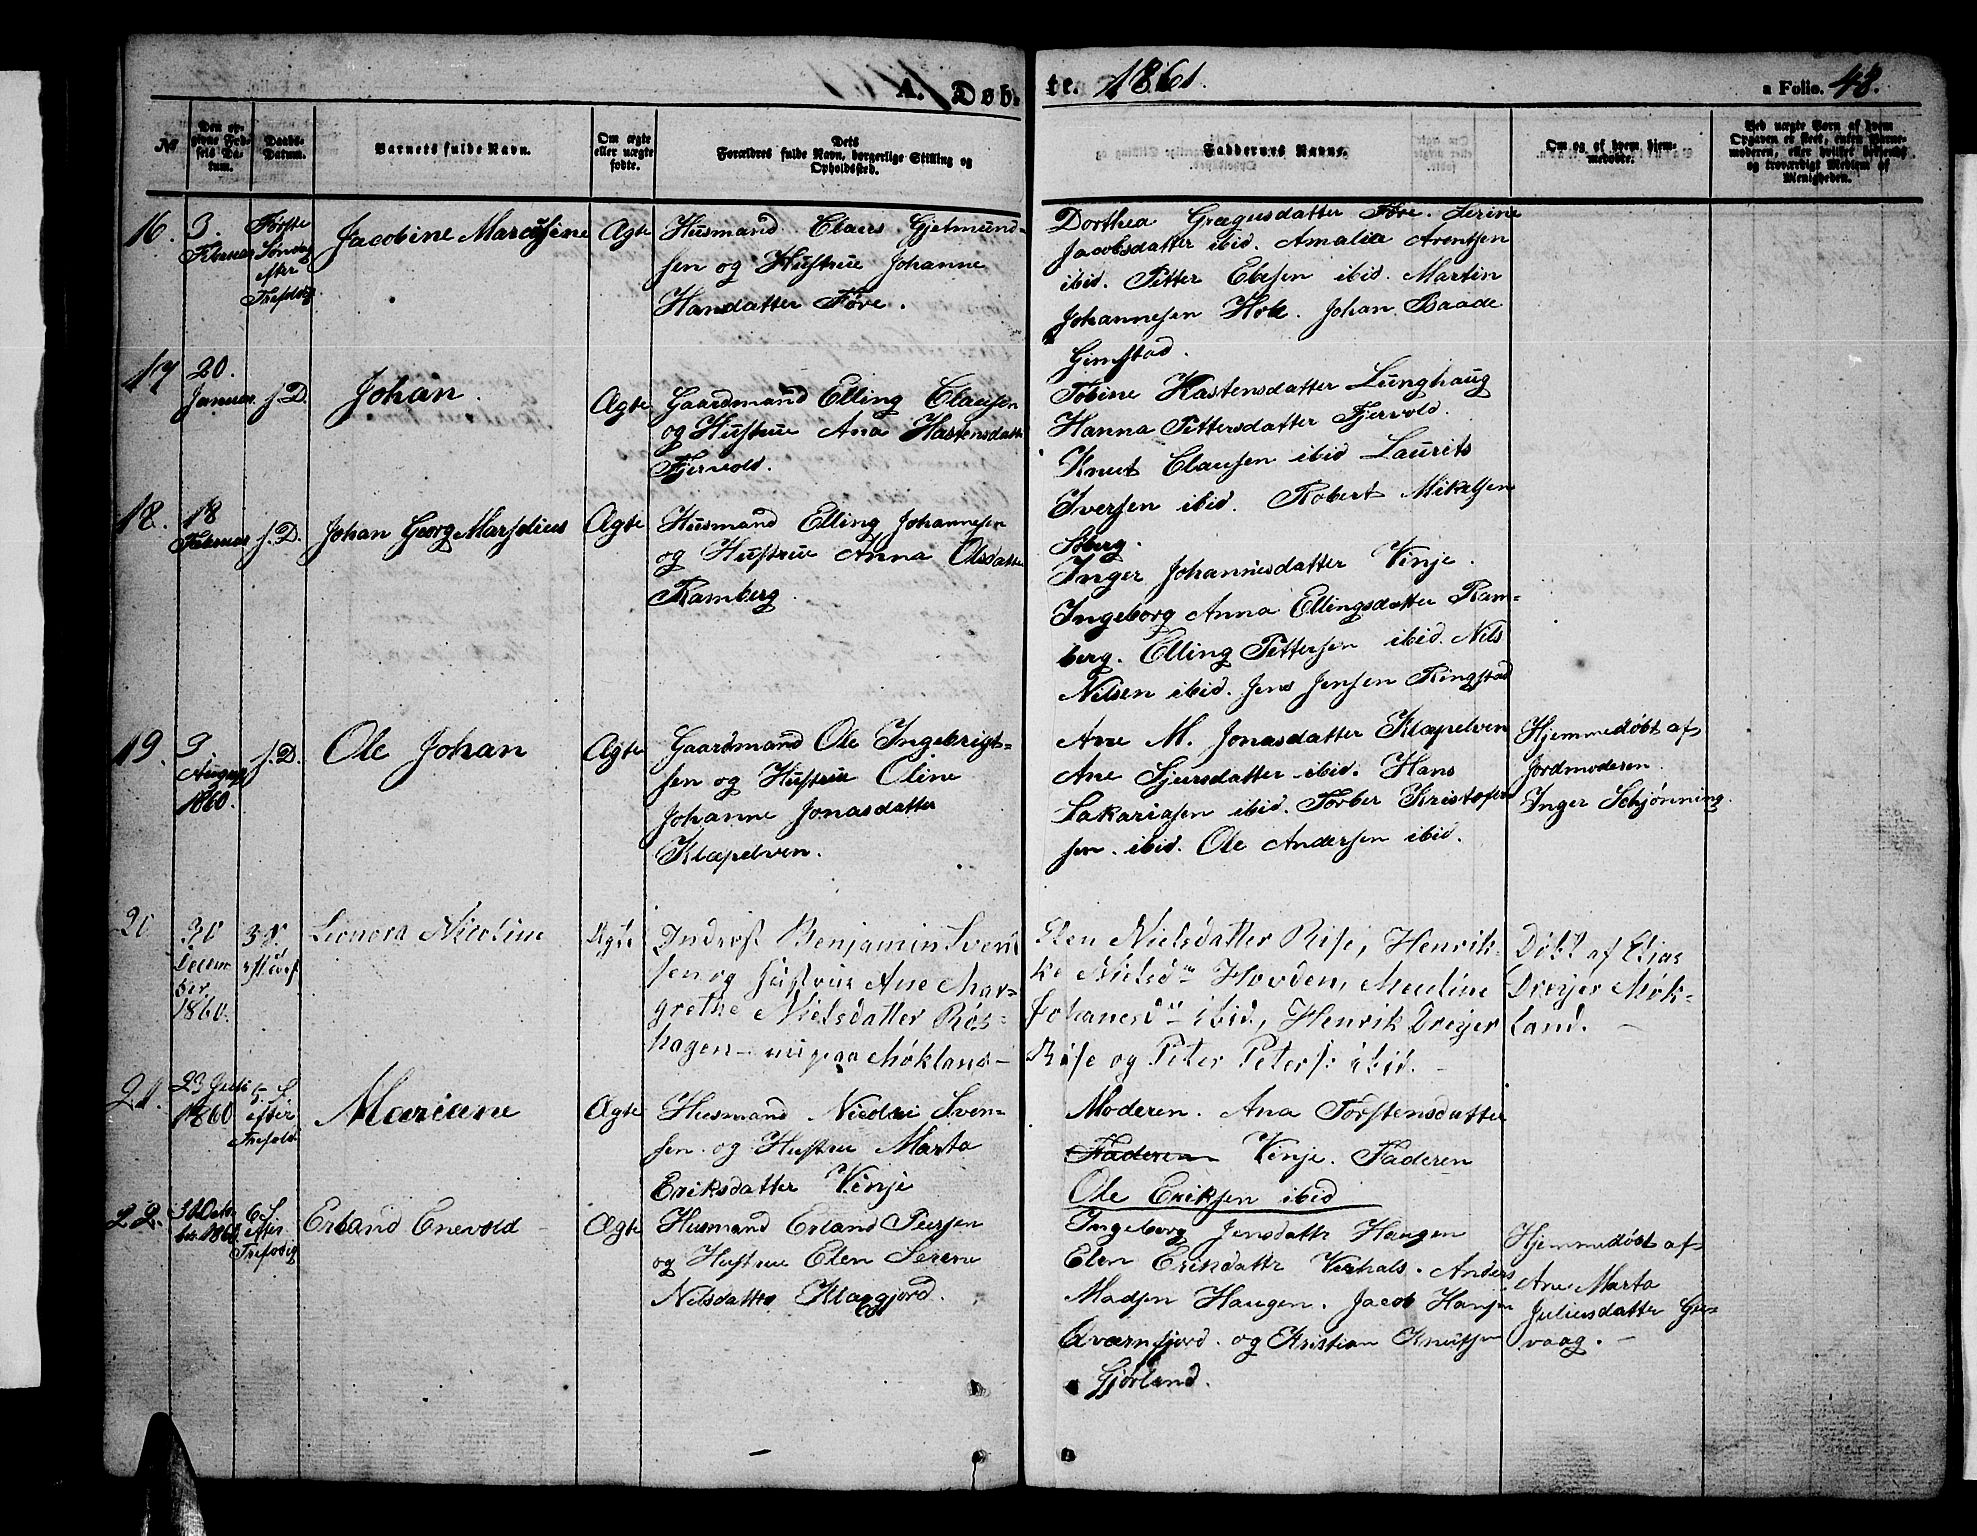 A. Døb-
te. 1861.
a Folio. 48.
№
Den op-
givne Fød-
sels Da-
tum.
Daabs-
Datum.
Barnets fulde Navn.
Om ægte
eller uægte
fødte.
Dets
Forældres fulde Navn, borgerlige Stilling og
Opholdssted.
Faddernes Navne.
Om og af hvem hjem-
medøbt.
Ved uægte Børn af hvem
Opgaven er skeet, enten Barne-
moderen, eller hvilket bekjendt
og troværdigt Medlem af
Menigheden.
16.
3.
Februar
Første
Søndag
efter
Trefoldig
Jacobine Marcusine
Ægte
Husmand Claus Gjetmund-
sen og Hustrue Johanne
Hansdatter Føre.
Dorthea Grægusdatter Føre. Serine
Jacobsdatter ibid. Amalia Arentsen
ibid. Petter Ebesen ibid. Martin
Johannesen Hole. Johan Baade
Gimstad.
17
20.
Januar
s. D.
Johan.
Ægte
Gaardmand Elling Clausen
og Hustrue Ana Hastensdatter
Fjervold.
Tobine Hastensdatter Lunghaug
Hanna Pettersdatter Fjervold.
Knut Clausen ibid Laurits
Iversen ibid. Robert Mikelsen
Søberg.
18.
18
Februar
s. D.
Johan Georg Marselius
Ægte
Husmand Elling Johannesen
og Hustrue Anna Olsdatter
Ramberg.
Inger Johannesdatter Vinje.
Ingeborg Anna Ellingsdatter Ram-
berg. Elling Pettersen ibid. Nils
Nilsen ibid. Jens Jensen Ringstad
19.
3.
August
1860.
s. D.
Ole Johan
Ægte
Gaardmand Ole Ingebrigt-
sen og Hustrue Oline
Johanne Jonasdatter
Klæpelven.
Ane M. Jonasdatter Klæpelven
Ane Sjursdatter ibid. Hans
Sakariasen ibid. Torber Kristofer
sen. ibid. Ole Andersen ibid.
Hjemmedøbt af
Jordmoderen
Inger Schjønning.
20
30
Decem
ber
1860.
3 S.
Leonora Nicoline
Ægte
Inderst Benjamin Svend
sen og Hustrue Ane Mar-
grethe Nielsdatter Røs-
hagen - nu paa Møkland -
Elen Nielsdatter Rise, Henrik-
ke Nielsdtr Hovden, Meuline
Johanesdtr ibid., Henrik Dreyer
Rise og Peter Peters: ibid.
Døbt af Elias
Dreyer Møk-
land. -
21.
23 Juli
1860
5 S.
efter
Trefold.
Mariane
Ægte
Husmand Nicolai Sven-
sen og Hustrue Marta
Eriksdatter Vinje
Moderen. Ana Torstensdatter
Faderen Vinje. Faderen
Ole Eriksen ibid
22.
31 Octo
ber 1860
6 S.
efter
Trefoldig
Erland Enevold
Ægte
Husmand Erland Peersen
og Hustrue Elen Serene
Nilsdatter Klaggjord.
Ingeborg Jensdattr Haugen
Elen Eriksdattr Verhals. Anders
Madsen Haugen. Jacob Hansen
Qværnfjord. og Kristian Knutsen
Gjørland.
Hjemmedøbt af
Ane Marta
Juliusdatter Gus-
vaag. -